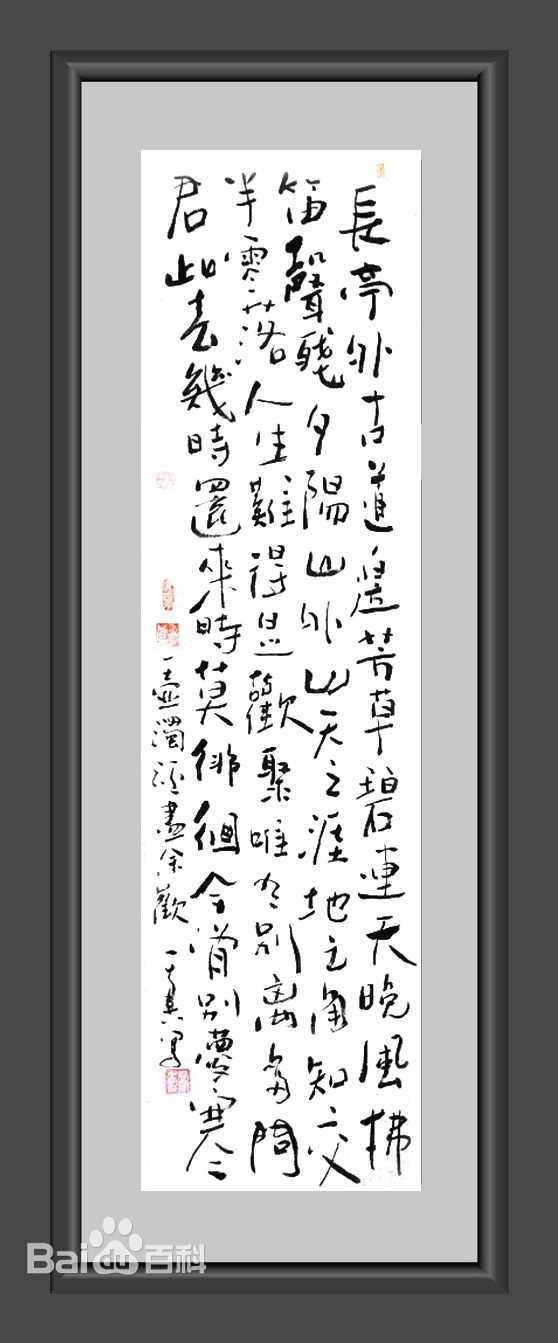 長亭外古道邊芳草碧連天晚風拂
笛聲殘夕陽山外山天之涯地之角知交
半零落人生難得是歡聚唯有別離多問
君此去幾時還來時莫徘徊今宵別夢寒
一壺濁酒盡余歡
Bai du 百科